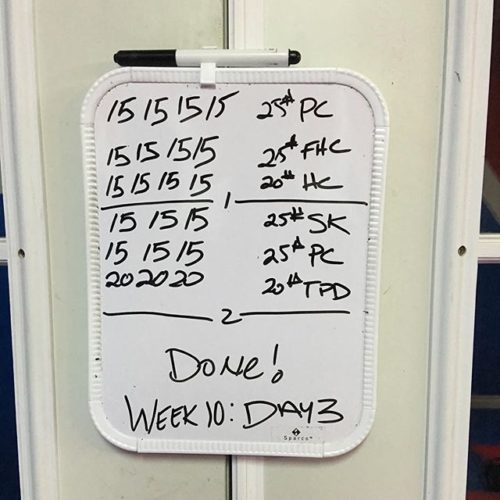 15 15 15 15 25# PC
15 15 15 15 25# FHC
15 15 15 15 20# HC
1
15 15 15 25# SK
15 15 15 25# PC
20 20 20 20# TPD
2
DONE!
WEEK 10: DAY 3
Sparco™